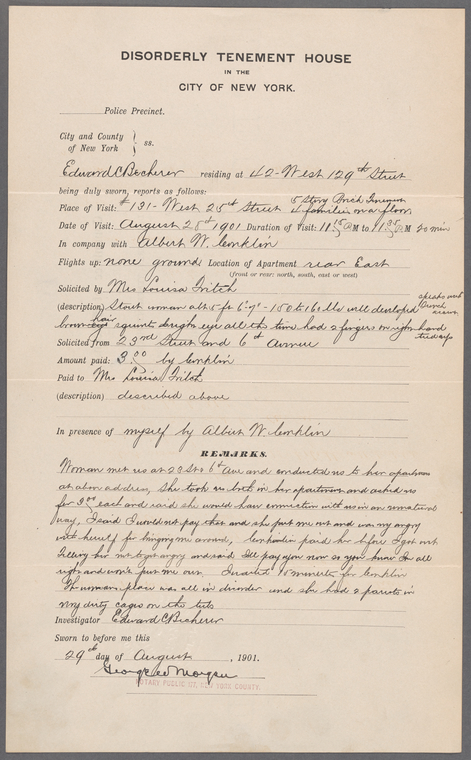 DISORDERLY TENEMENT HOUSE
IN THE
CITY OF NEW YORK.
Police Precinct.
City and County
of New York } ss.
Edward C Becherer residing at 42-West 129th Street
being duly sworn, reports as follows:
5 Story Brick Tenement
Place of Visit: #131-West 25th Street 4 families on a floor
Date of Visit: August 28th 1901 Duration of Visit: 11 15 P M to 11 35 P M 20 min
In company with Albert W. Conklin
Flights up: none ground Location of Apartment rear East
(front or rear: north, south, east or west)
Solicited by Mrs Louisa Fritch
(description) Stout woman abt 5 ft 6" - 150 to 160 lbs well developed speaks with
brown hair squints right eye all the time had 2 fingers on right hand tied up
Solicited from 23rd Street and 6th Avenue
Amount paid: 3.00 by Conklin
Paid to Mrs Louisa Fritch
(description) described above
In presence of myself by Albert W Conklin
REMARKS.
Woman met us at 23 St & 6th Ave and conducted us to her apartment
at above address, She took us both in her apartment and asked us
for 3 00 each and said she would have connection with us in an unnatural
way, I said I would not pay that and she put me out and was very angry
with herself for bringing me around, Conklin paid her before I got out
telling her not to get angry and said Ill pay you now so you know Im all
right and wont put me out. I waited 15 minutes for Conklin
The womans place was all in disorder and she had 2 parrots in
very dirty cages on the
Investigator Edward C Becherer
Sworn to before me this
29th day of August, 1901.
George W Morgan
NOTARY PUBLIC NEW YORK COUNTY.